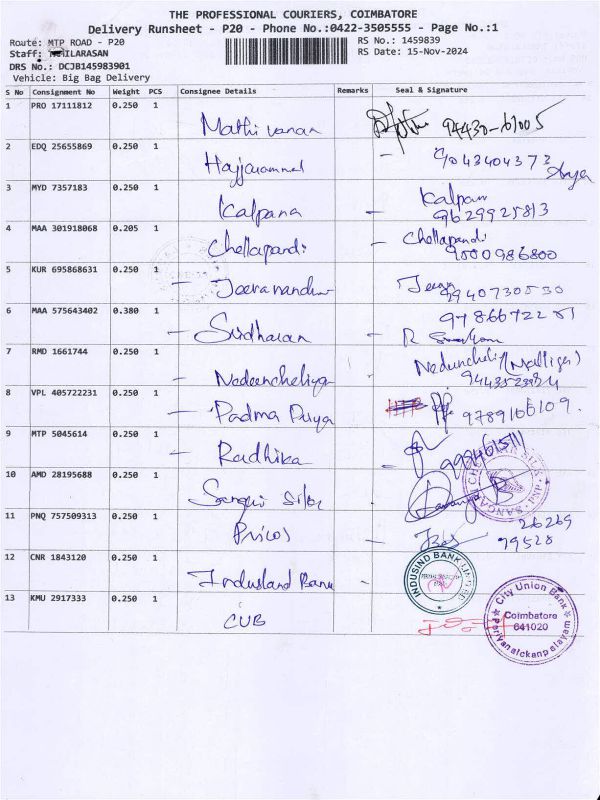 THE PROFESSIONAL COURIERS, COIMBATORE
Delivery Runsheet - P20 - Phone No.:0422-3505555 - Page No.:1
Route: MTP ROAD - P20 RS No.: 1459839
Staff: ILARASAN RS Date: 15-Nov-2024
DRS No.: DCJB145983901
Vehicle: Big Bag Delivery
S No Consignment No Weight PCS Consignee Details Remarks Seal & Signature
1 PRO 17111812 0.250 1
Mathivanan 94430-61005
2 EDQ 25655869 0.250 1
- 9043404373
3 MYD 7357183 0.250 1
Kalpana - Kalpana
9629925813
4 MAA 301918068 0.205 1
Chellapandi - Chellapandi
9500986800
5 KUR 695868631 0.250 1
- 9940730530
6 MAA 575643402 0.380 1
- Sudharan - R
7 RMD 1661744 0.250 1
- Neduncheli (Malliga)
8 VPL 405722231 0.250 1
- Padma Priya 9789166109.
9 MTP 5045614 0.250 1
- Radhika
10 AMD 28195688 0.250 1
11 PNQ 757509313 0.250 1
Pricol - 26269
79528
12 CNR 1843120 0.250 1
Indusland Bank -
INDUSIND BANK
13 KMU 2917333 0.250 1
CUB
City Union Bank
Coimbatore
641020
Periyanaickanpalayam